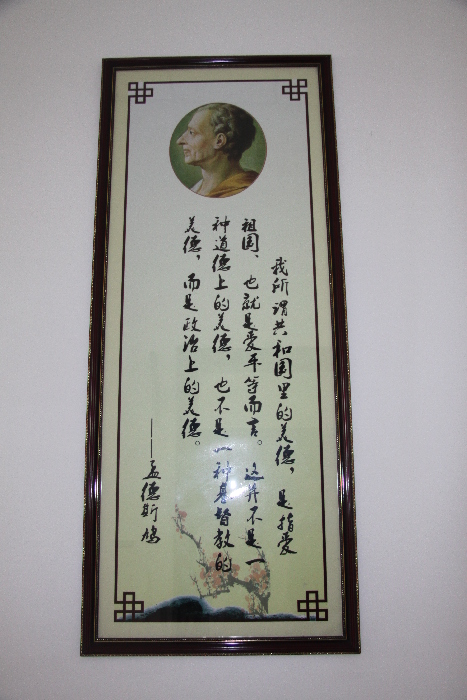 我所谓共和国里的美德，是指爱
祖国、也就是爱平等而言。这并不是一
种道德上的美德，也不是一种基督教的
美德，而是政治上的美德。
——孟德斯鸠